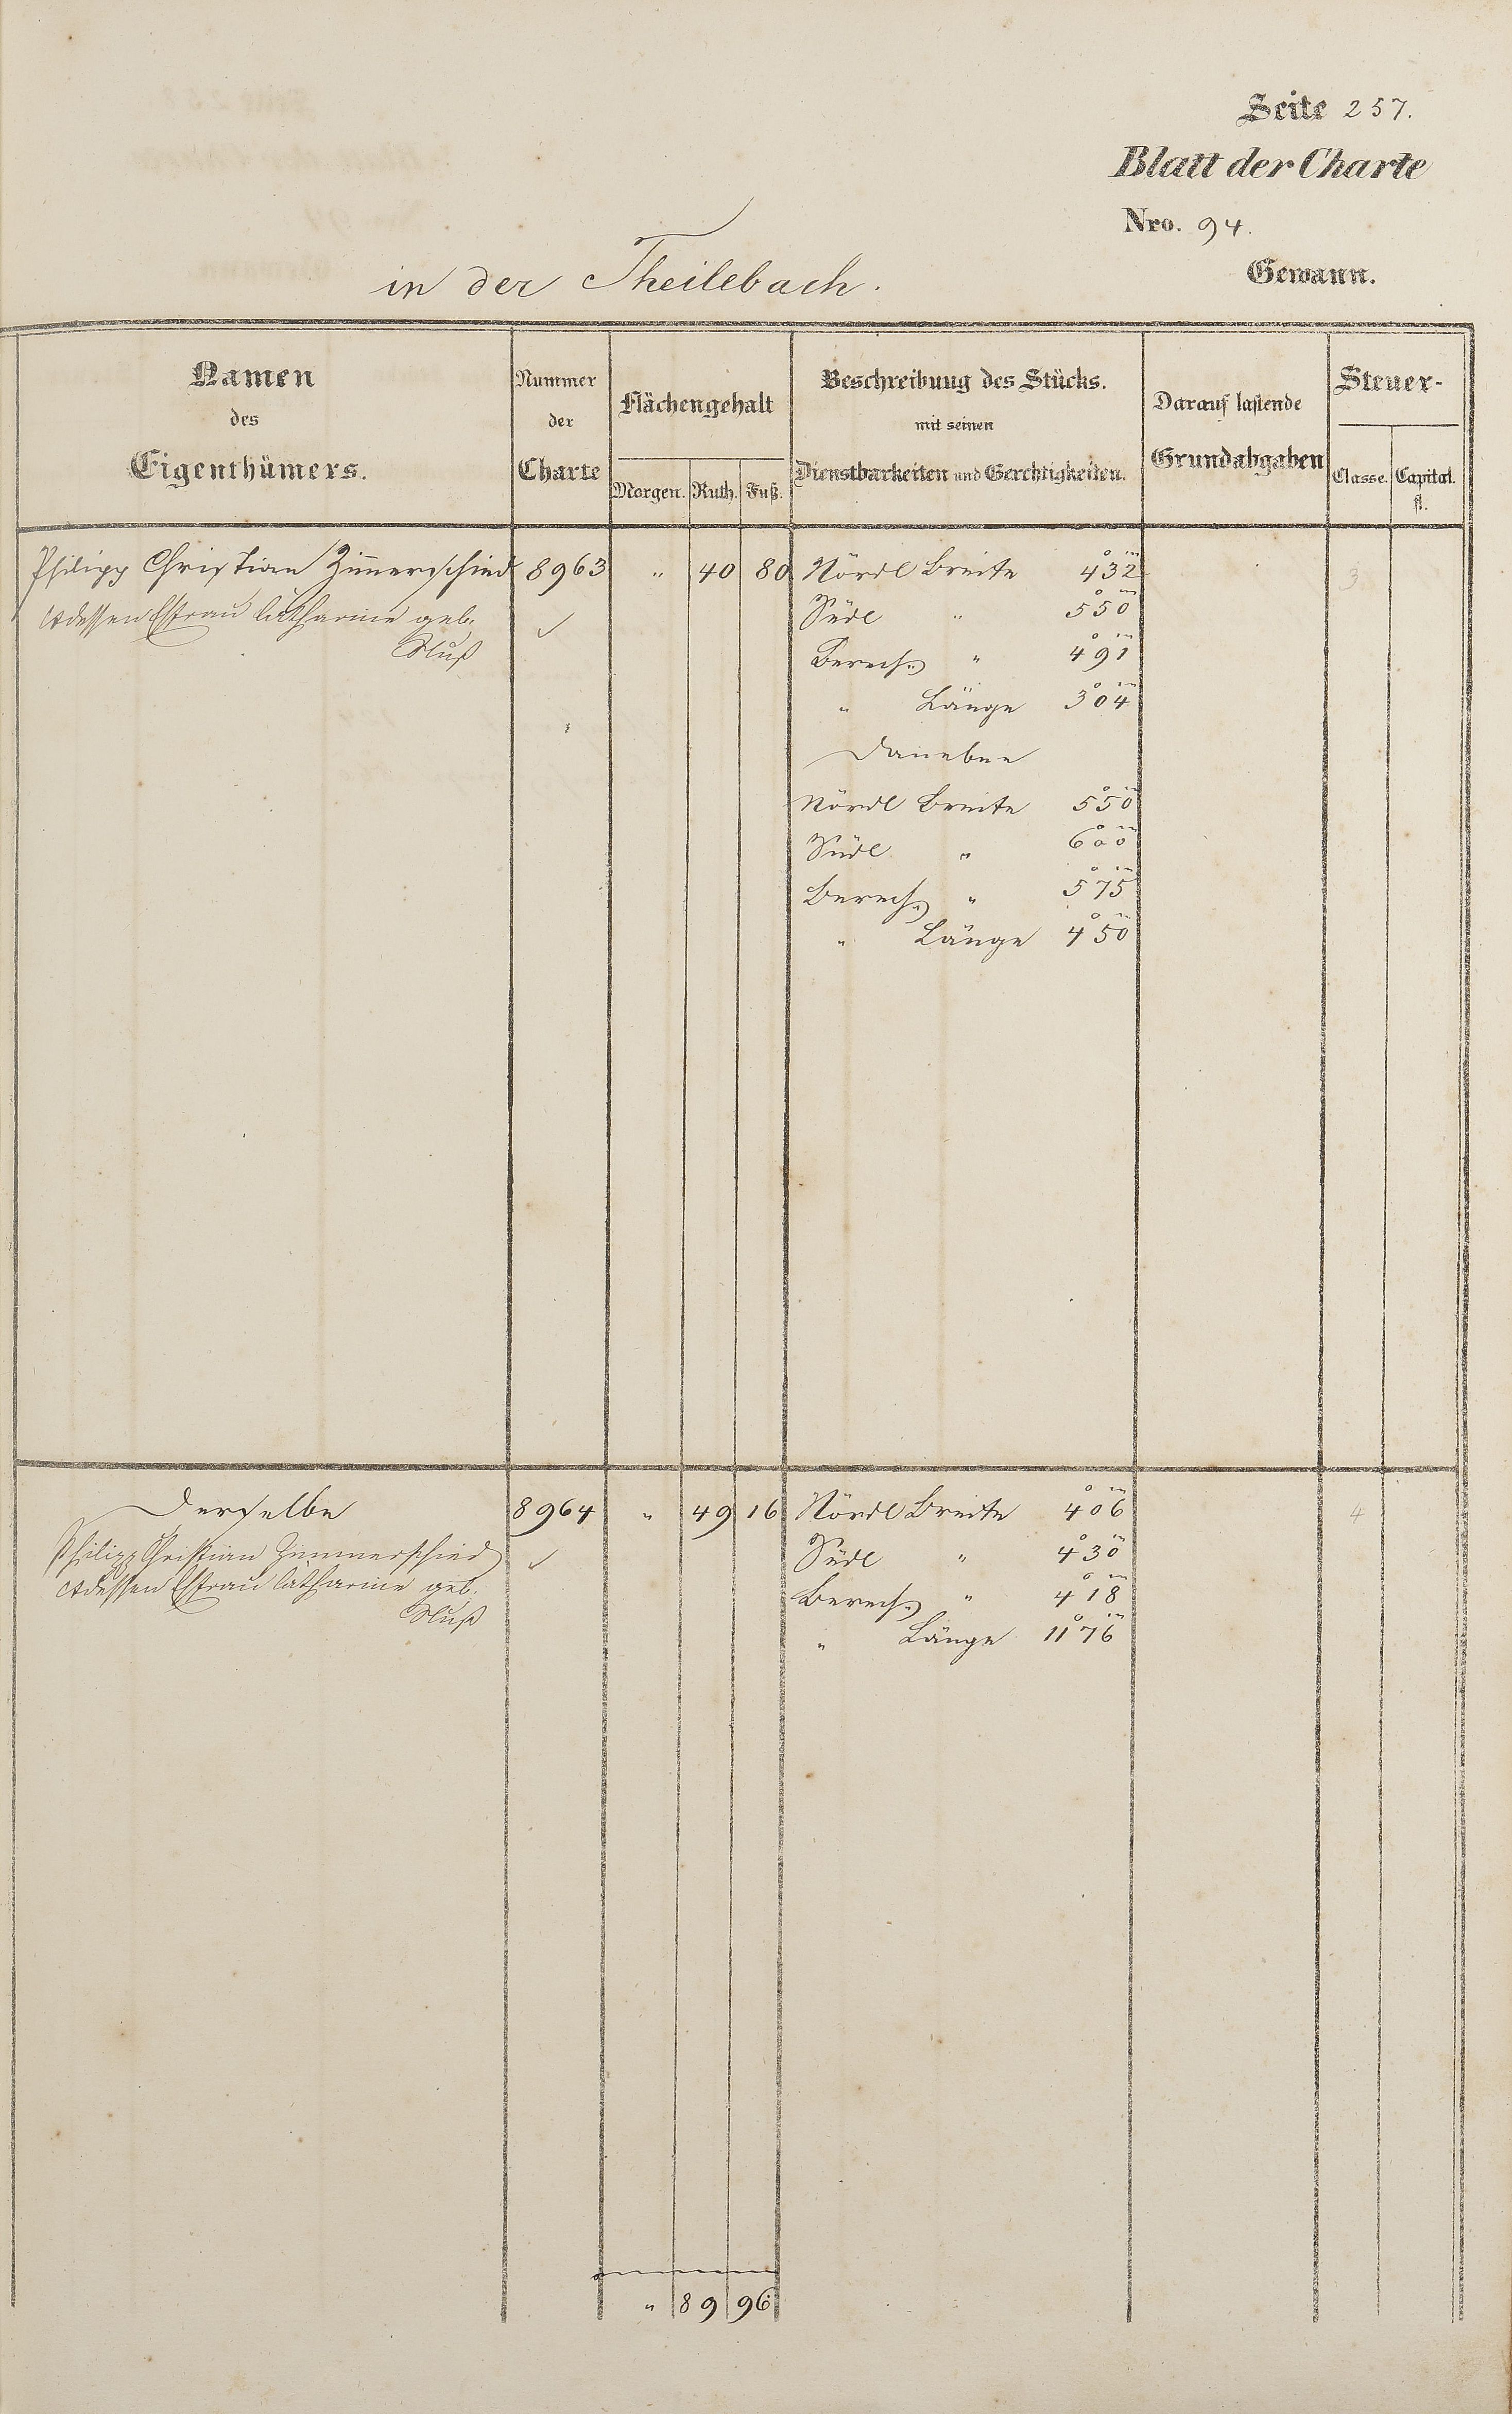 Seite 257.
Blatt der Charte
Nro. 94.
in der Theilebach. Gewann.
Namen des Eigenthümers.
Nummer der Charte
Flächengehalt
Morgen. Ruth. Fuß.
Beschreibung des Stücks.
mit seinen
Dienstbarkeiten und Gerechtigkeiten.
Darauf lastende
Grundabgaben
Steuer-
Classe. Capital.
fl.
Philipp Christian Zim̄erschied 8963 " 40 80 Nördl Breite 4°32‴ 3
dessen Ehfrau Catharine geb. ✓ Südl " 5°50‴
Berech. " 4°91‴
" Länge 3°04‴
Daneben
Nördl Breite 5°50‴
Südl " 6°00‴
Berech. " 5°75‴
" Länge 4°50‴
Derselbe 8964 " 49 16 Nördl Breite 4°06‴ 4
Philipp Christian Zimmerschied ✓ Südl " 4°30‴
dessen Ehfrau Catharine geb. Berech. " 4°18‴
" Länge 11°76‴
" 89 96